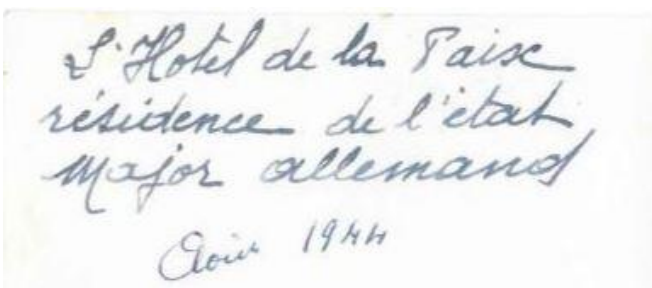 L'Hotel de la Paix
résidence de l'état
Major allemand
Août 1944